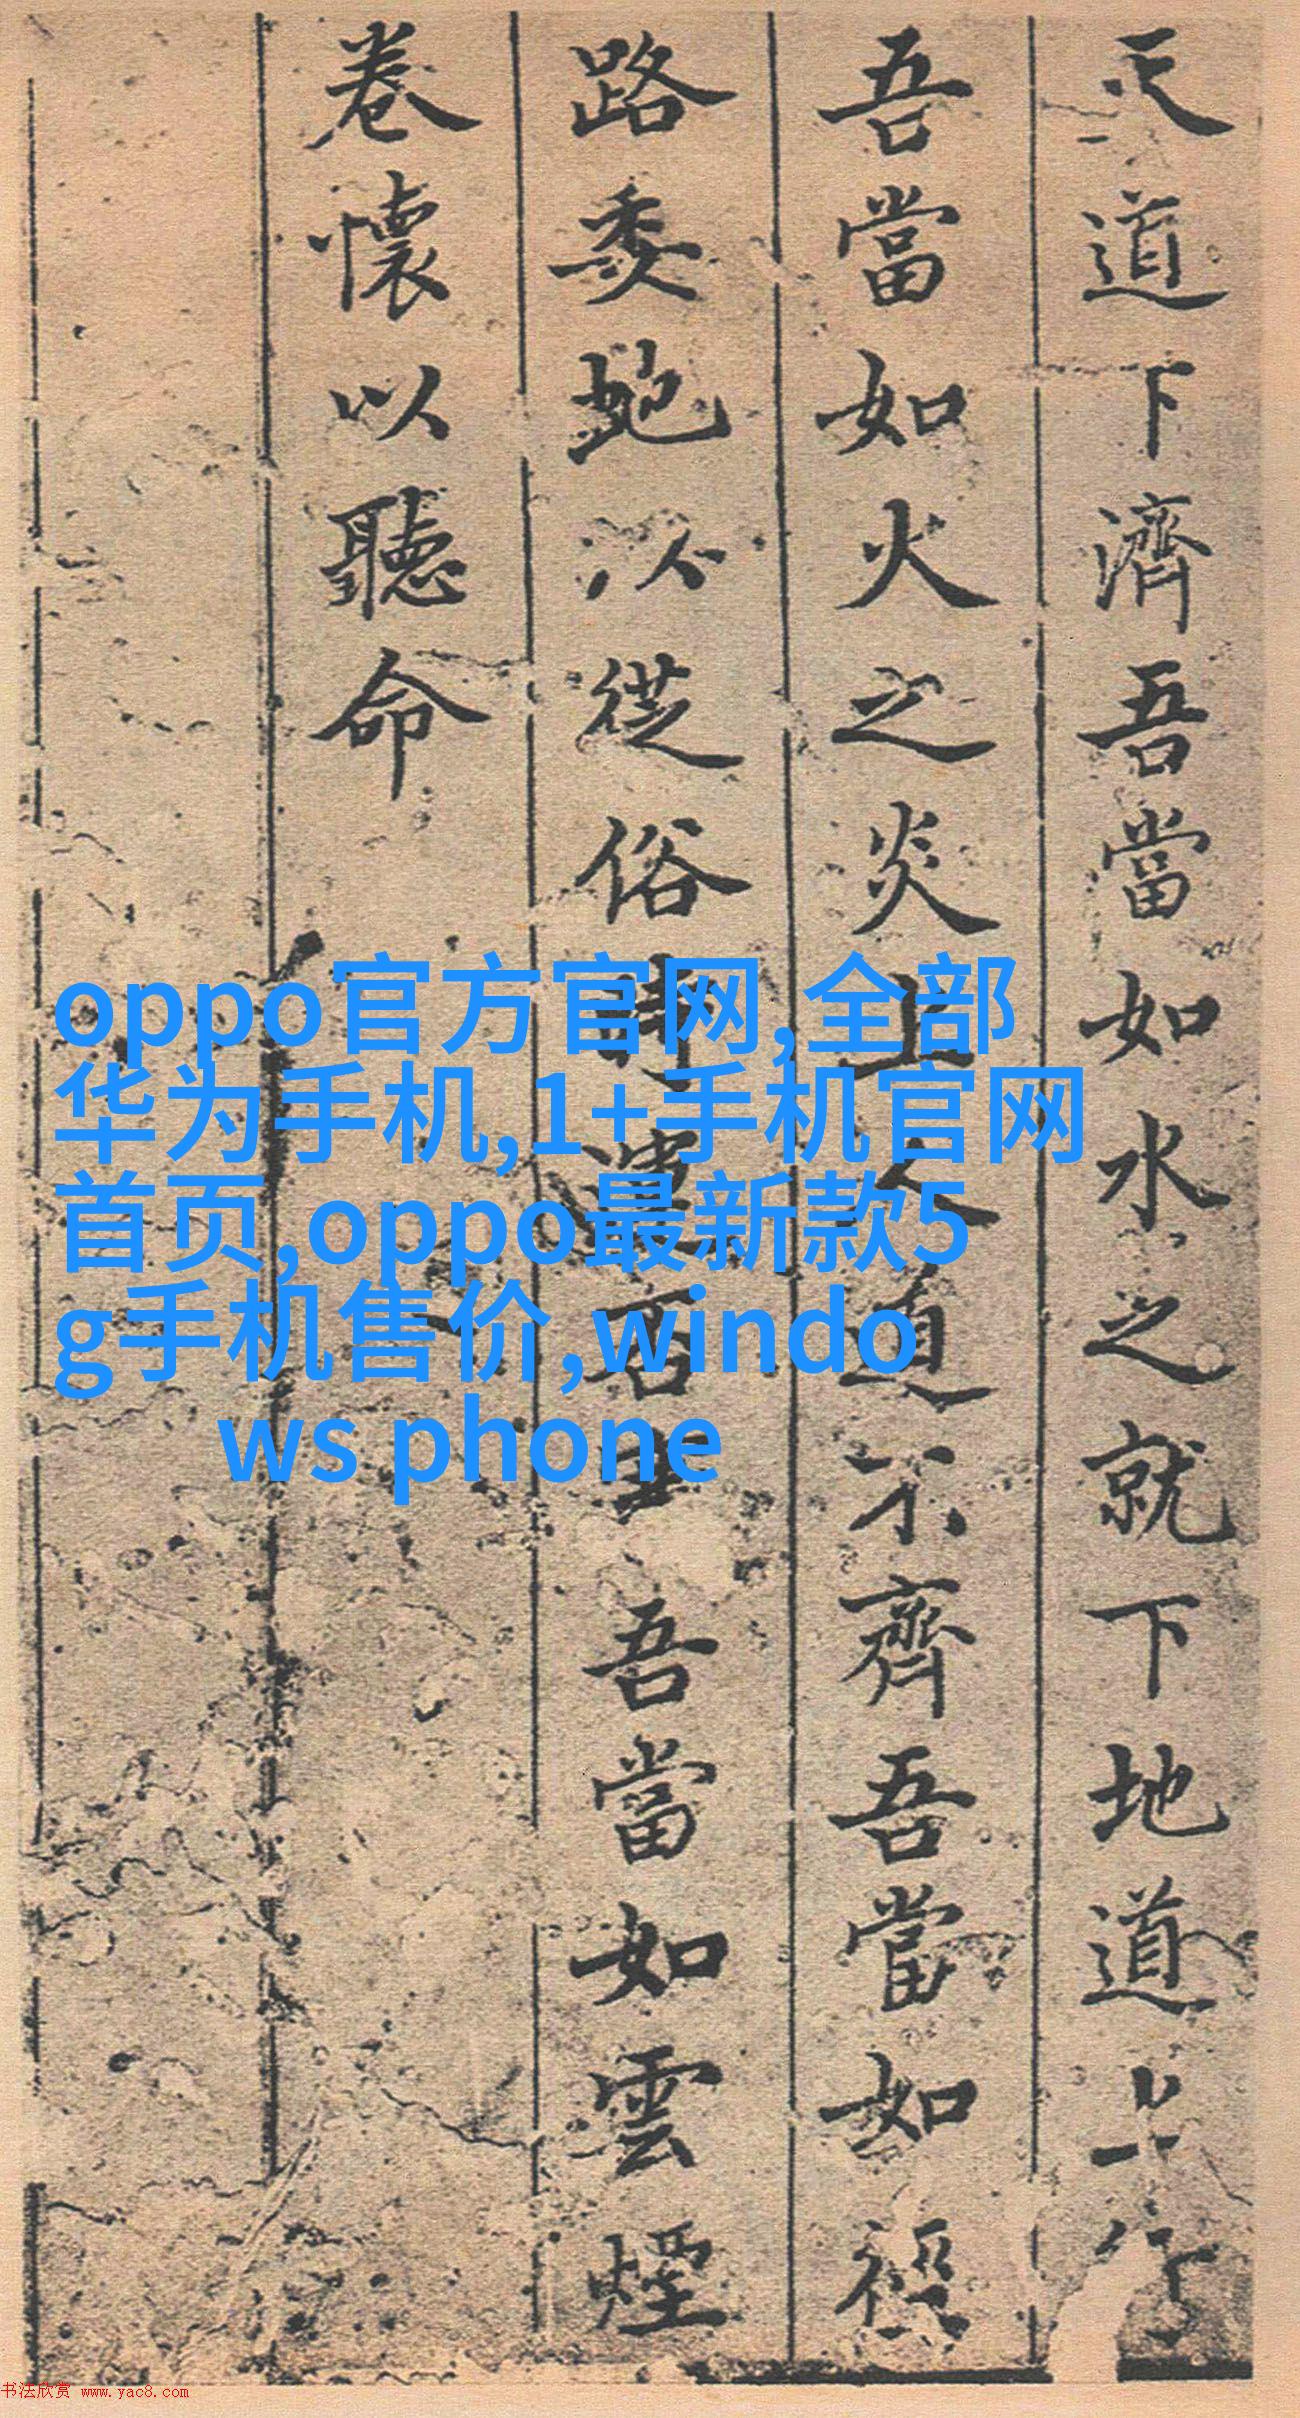 天道下濟吾當如水之就下地道上行
吾當如火之炎上人道不齊吾當如
路委蛇以從俗
吾當如雲煙
卷懷以聽命
oppo官方官网,全部
华为手机,1+手机官网
首页,oppo最新款5
g手机售价,windo
ws phone
书法欣赏 www.yac8.com